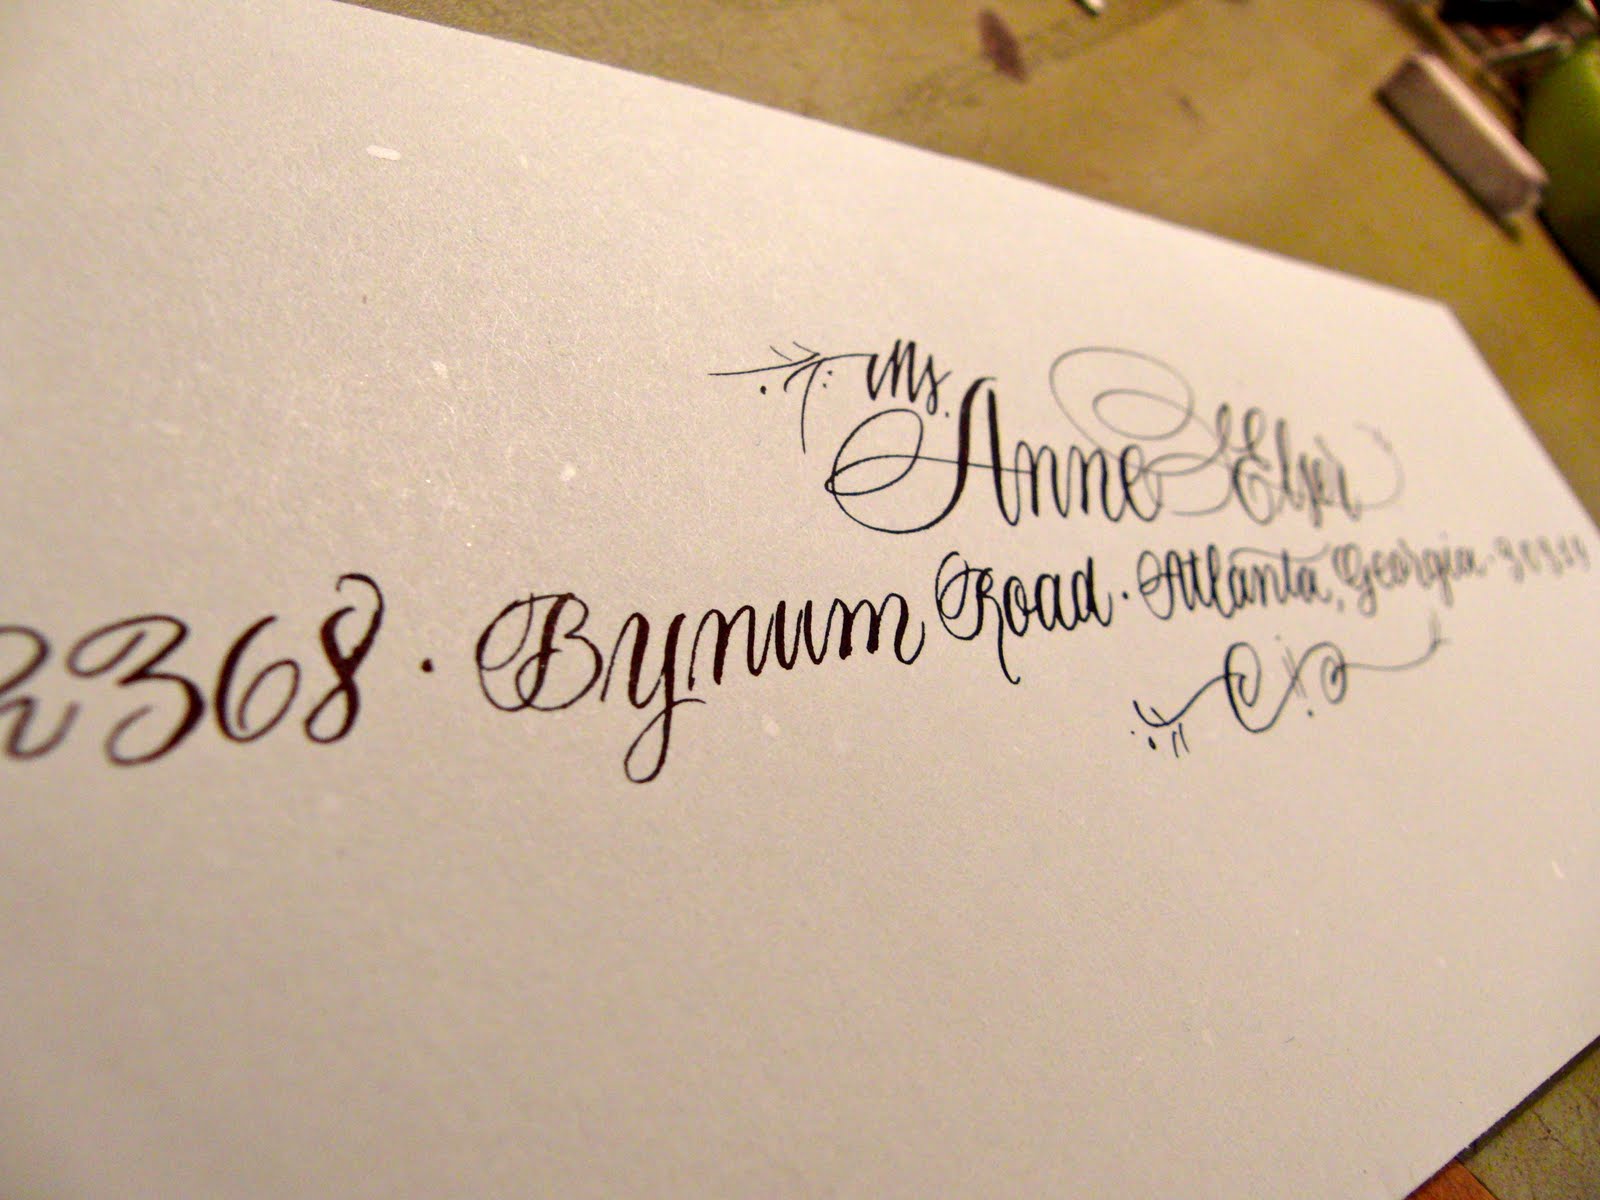 Ms.
Anne Elser
2368 · Bynum Road · Atlanta, Georgia ·